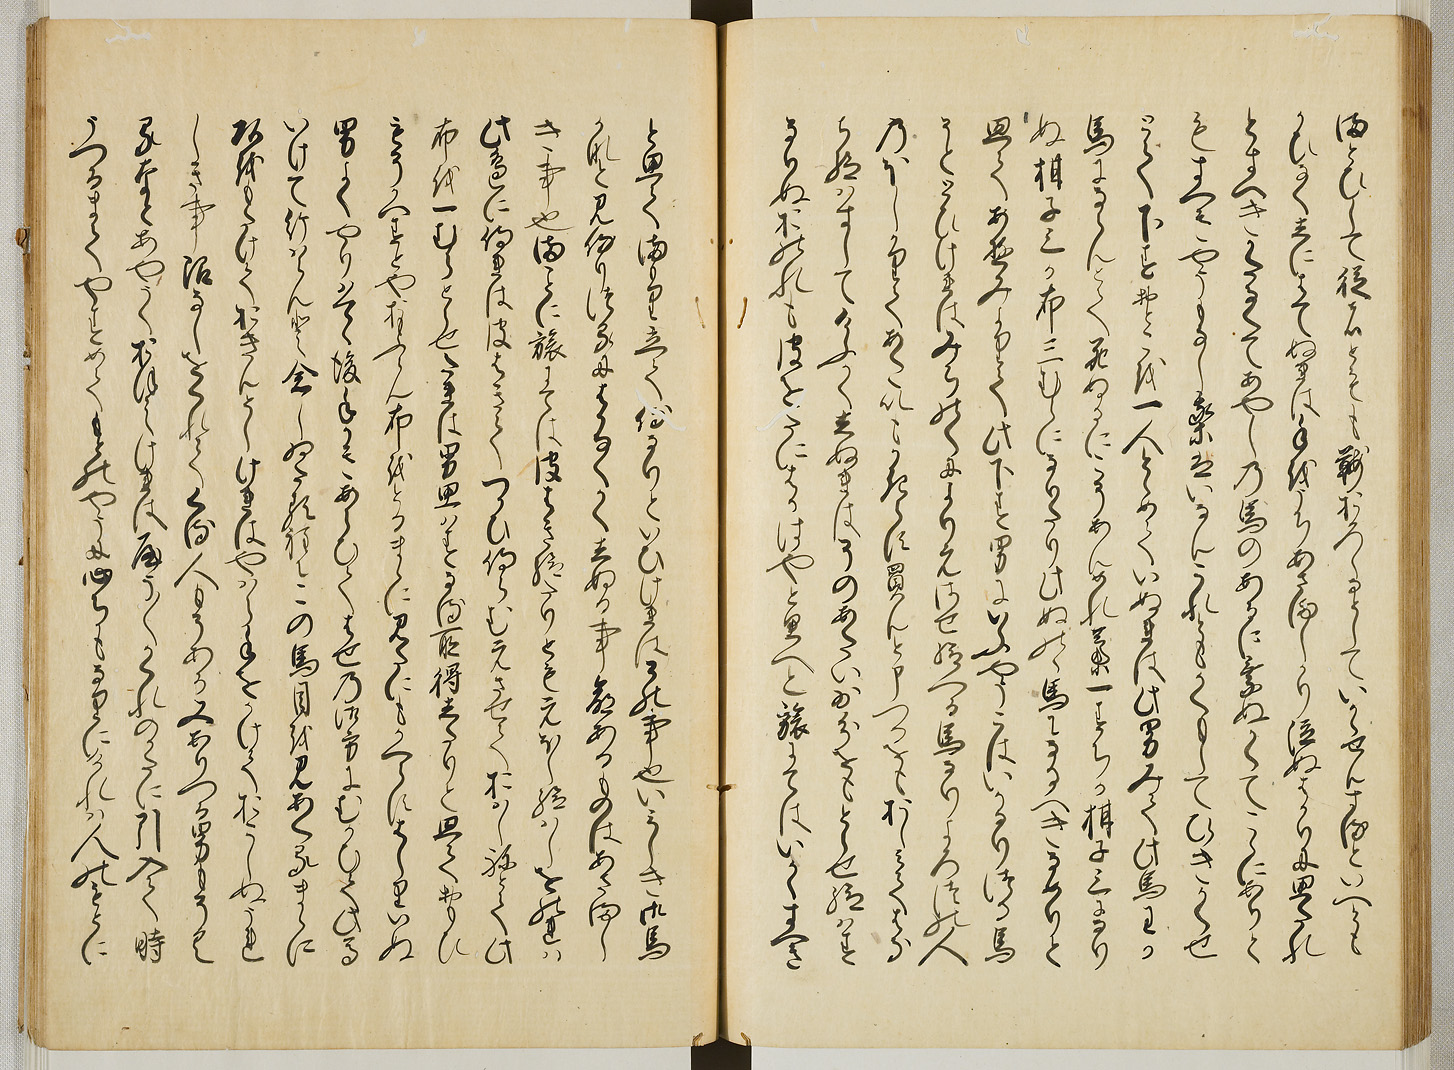 まとひして従者ともも鞍おろしなとしていかせんするといへとも
かひなく立にはてぬれは手を打あさましかり泣ぬはかりに思たれ
とすへきかたなくてあやしの馬のあるに乗ぬかくてこゝにありと
もすへきやうもなし我等はいなんこれともかくもしてひきかくせ
とて下すおとこを一人とゝめていぬれは此男みて此馬わか
馬にならんとて死ぬるにこそあんめれ藁一すちか柑子三になり
ぬ柑子三か布三むらになりたり此ぬのゝ馬になるへきなめりと
思てあゆみよりて此下す男にいふやうこはいかなりつる馬
そととひけれはみちのくによりえさせ給へる馬なりよろつの人
のほしかりてあたひもかきらす買んと申つるをもおしみてはな
ち給はすしてけふかく立ぬれはそのあたいせうふんをもとらせ給はす
なりぬおのれも皮をたにはかはやと思へと旅にてはいかゝすへき
と思てまもり立て侍なりといひけれはその事也いみしき御馬
かなと見侍りつるにはかなくかく立ぬる事命あるものはあさまし
き事也まことに旅にては皮はき給たりともえほし給はしをのれは
此辺に侍れは皮はきてつかひ侍らむえさせておはしねとて此
布を一むらとらせたれは男思はすなる所得したりと思ておもひ
もそかへすとやおもふらん布をとるまゝに見たにもかへらすはしりいぬ
男よくやりはてゝ後手かきあらひてはせの御方にむかひて此馬
いけて給はらんと念しゐたる程にこの馬目を見あくるまゝに
頭をもたけておきんとしけれはやはら手をかけておこしぬうれ
しき事限なしをくれてくる人もそある又ありつる男もそくる
なとあやうくおほえけれはやう〳〵かくれのかたに引入て時
うつるまてやすめてもとのやうに心ちもなりにけれは人のもとに